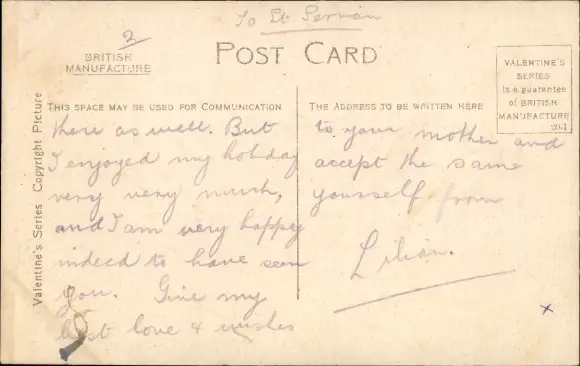 To St Servan
2
BRITISH
MANUFACTURE
POST CARD
VALENTINE'S
SERIES
is a guarantee
of BRITISH
MANUFACTURE
Valentine's Series Copyright Picture
THIS SPACE MAY BE USED FOR COMMUNICATION
there as well. But
I enjoyed my holiday
very very much,
and I am very happy
indeed to have seen
you. Give my
best love & wishes
THE ADDRESS TO BE WRITTEN HERE
to your mother and
accept the same
yourself from
Lilian.
x